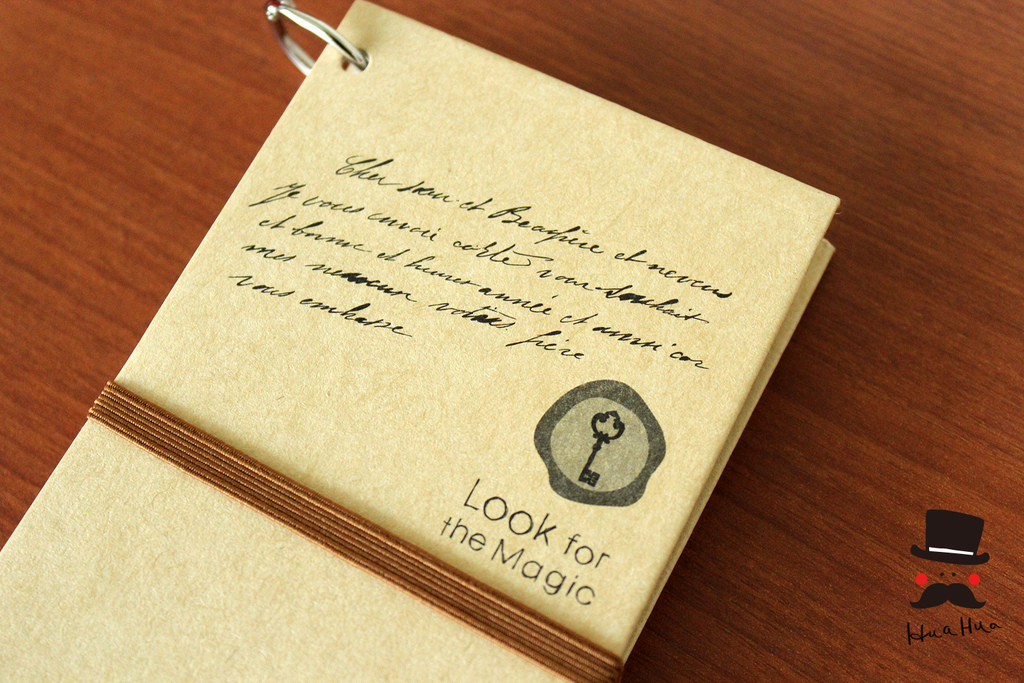 Cher sœur et Beaufrère et neveus
Je vous envoie carte vous souhait
et bonne et heureuse année et aussi car
mes neveux votre frère
vous embrasse
Look for
the Magic
HuaHua